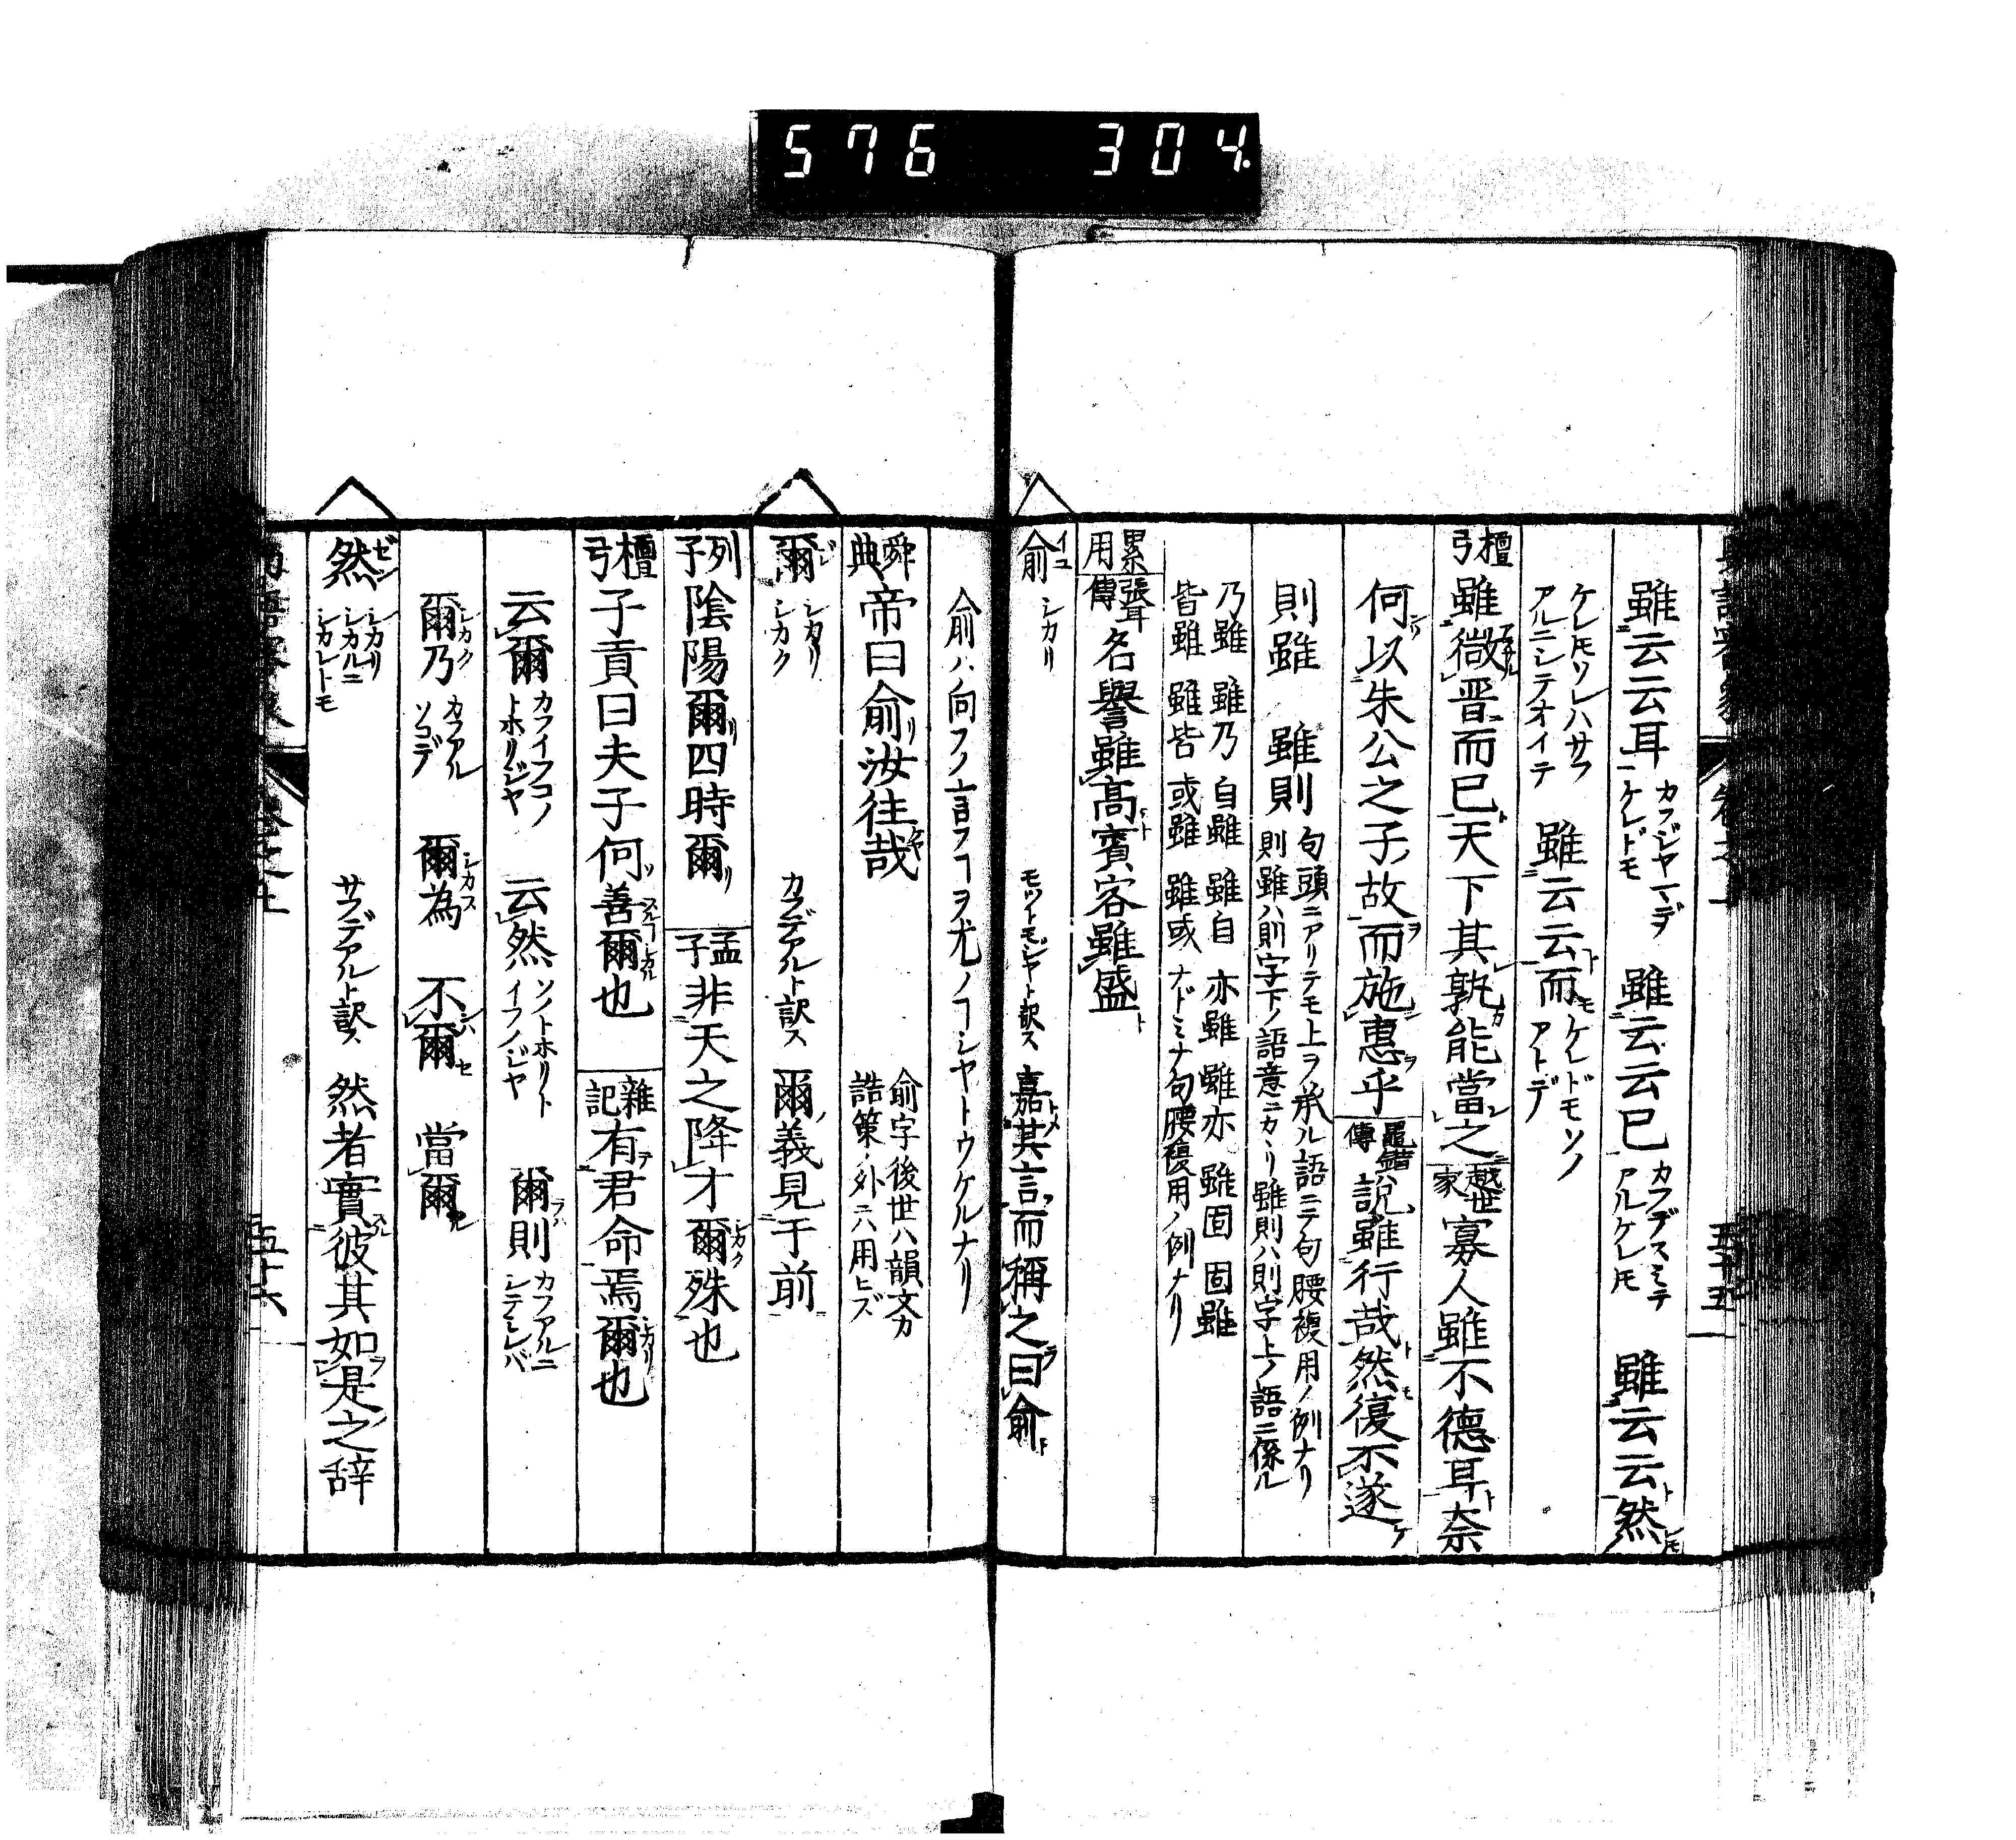 576 304
雖云云耳 カフジヤマデヲケレドモ 雖云云已 カフデスミテアルケレ𪜈 雖云云然
ケレ𪜈ソレハサフアルニシテオイテ 雖云云而 ケレドモソノアトデ
檀弓 雖微晋而已天下其孰能當之 越世家 寡人雖不德耳奈
何以朱公之子故而施惠乎 鼂錯傳 說雖行哉然復不遂
則雖 雖則 句頭ニアリテモ上ヲ承ル語ニテ句腰複用ノ例ナリ
則雖ハ則字下ノ語意ニカヽリ雖則ハ則字上ノ語ニ係ル
乃雖 雖乃 自雖 雖自 亦雖 雖亦 雖固 固雖
皆雖 雖皆 或雖 雖或 ナドミナ句腰複用ノ例ナリ
累用 張耳傳 名譽雖高賓客雖盛
俞 シカリ モツトモジヤト訳ス 嘉其言而稱之曰俞
俞ハ向フノ言フヿヲ尤ノヿシヤトウケルナリ
舜典 帝曰俞汝往哉 俞字後世ハ韻文カ誥策ノ外ニハ用ヒズ
爾 シカリ シカク カフデアルト訳ス 爾義見于前
列子 陰陽爾四時爾 孟子 非天之降才爾殊也
檀弓 子貢曰夫子何善爾也 雜記 有君命焉爾也
云爾 カフイフコノトホリジヤ 云然 ソノトホリトイフノジヤ 爾則 カフアルニシテミレバ
爾乃 カフアルソコデ 爾為 不爾 當爾
然 シカリ シカルニ シカレトモ サフデアルト訳ス 然者實彼其如是之辞
五十五
五十六